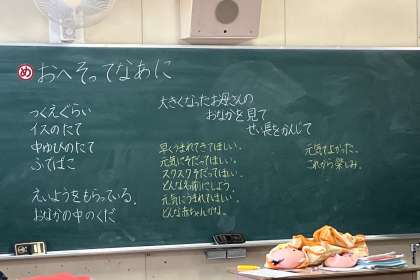 め おへそってなあに
つくえぐらい
イスのたて
中ゆびのたて
ふでばこ
えいようをもらっている。
おなかの中のくだ
大きくなったお母さんの
おなかを見て
せい長をかんじて
早くうまれてきてほしい。
元気に育ってほしい。
スクスク育ってほしい。
どんな名前にしよう。
元気にうまれてほしい。
どんな赤ちゃんかな。
元気でよかった。
これから楽しみ。